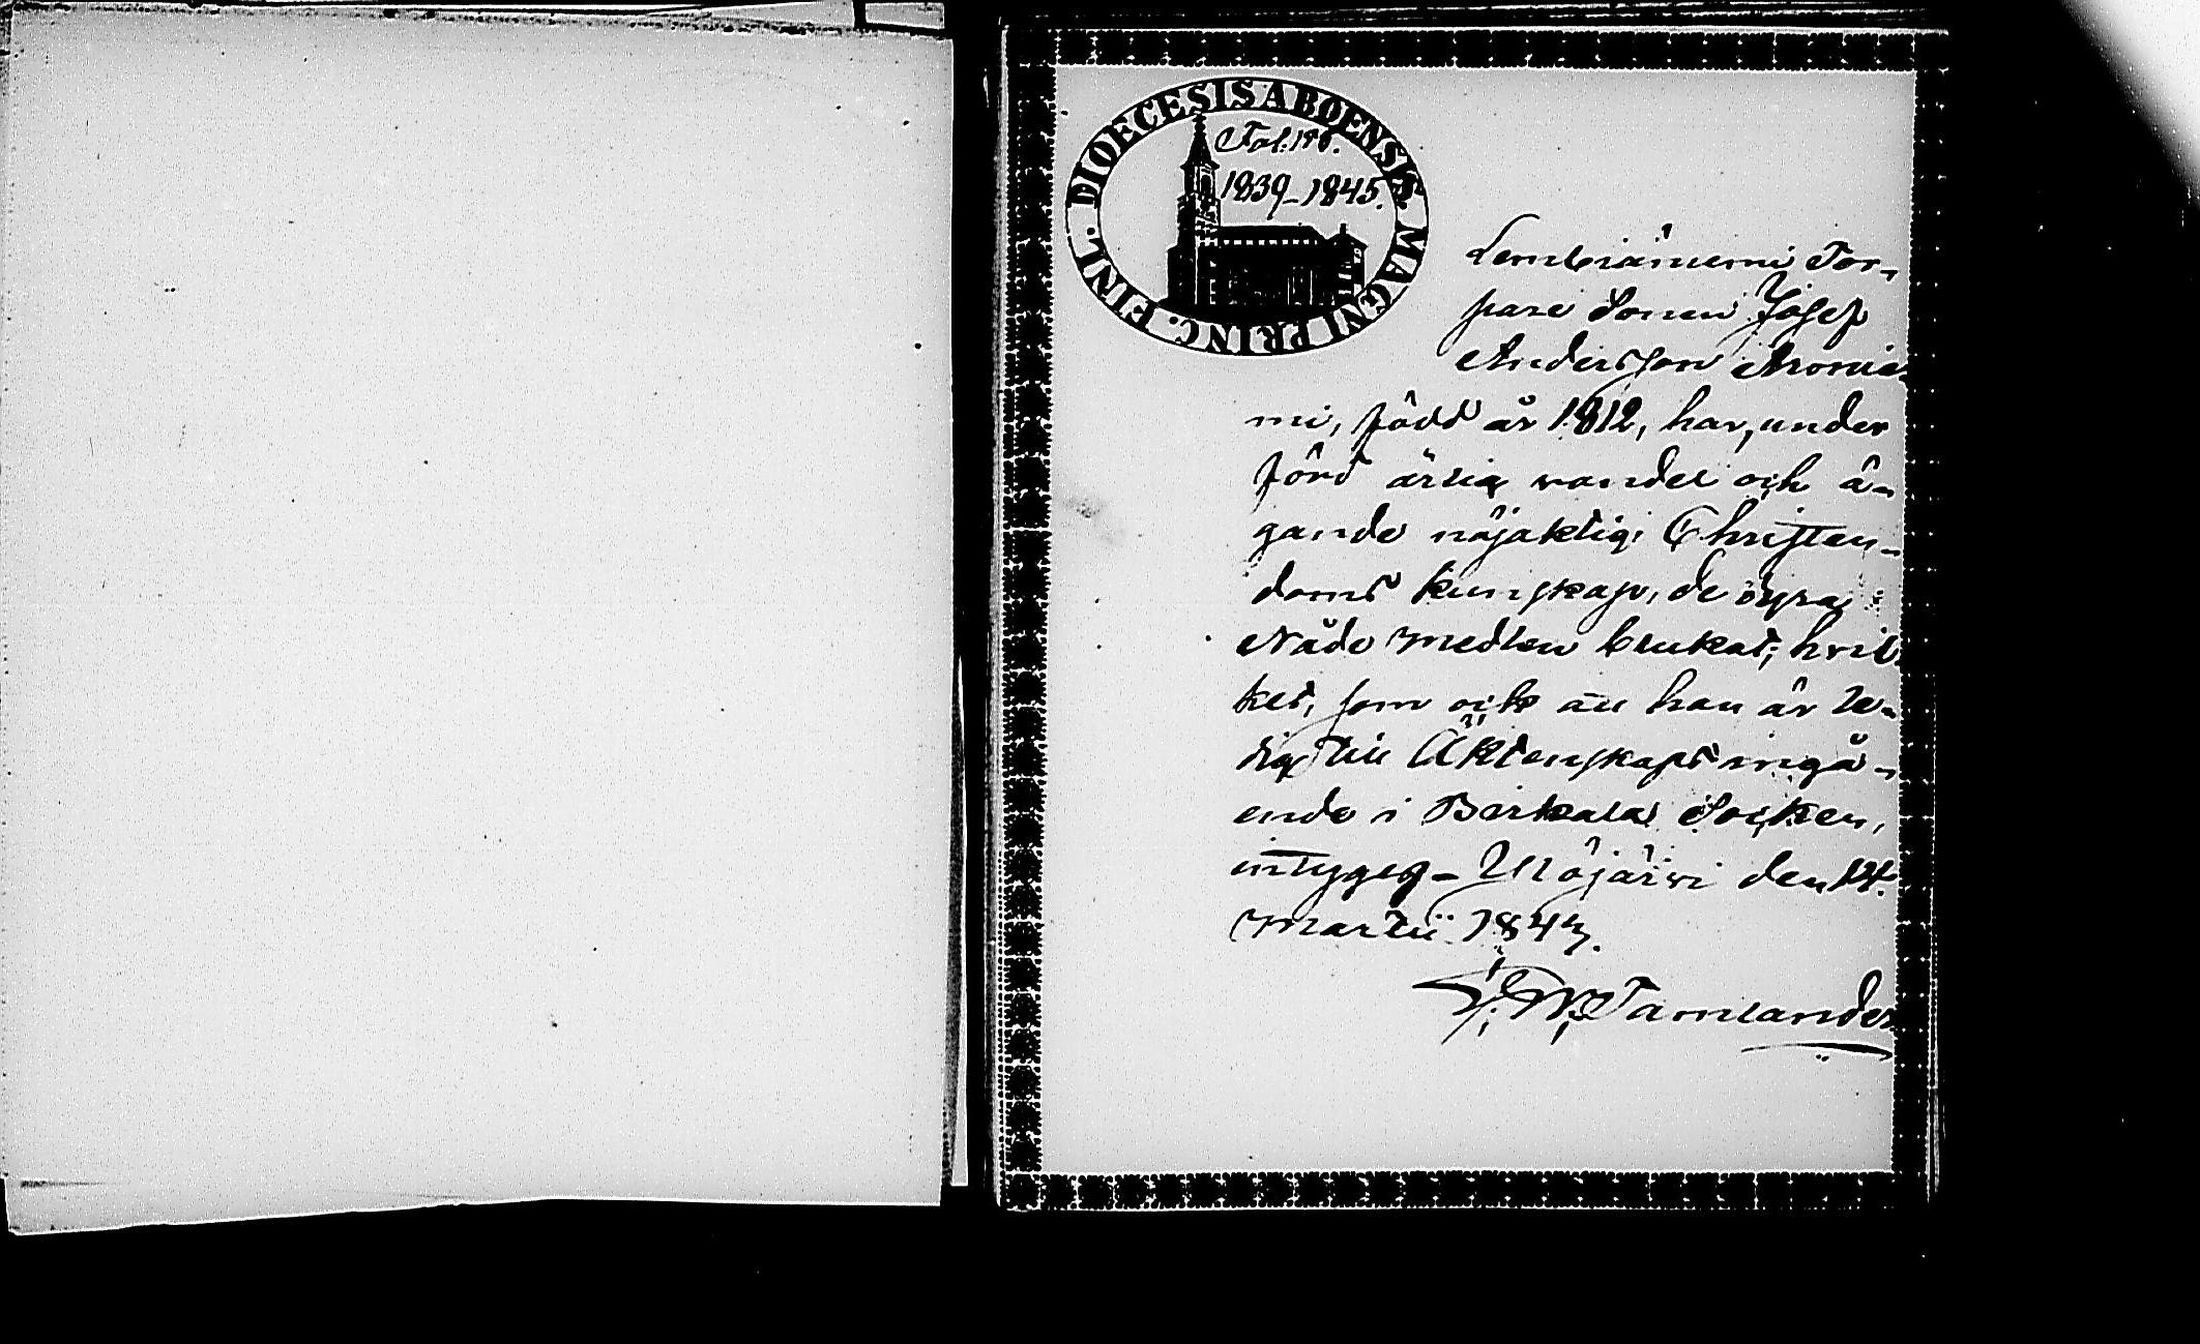 DIOECESIS ABOENSIS. MAGNI PRINC. FINL.
Fol. 198.
1839-1845.
Lembiäniemi Tor-
pare Sonen Josef
Andersson Aronie-
mi, född år 1812, har, under
förd ärlig vandel och ä-
gande nöjaktig Christen-
doms kunskap, de dyra
Nåde medlen brukat; hvil
ket, som ock att han är le-
dig till Äktenskaps ingå-
ende i Birkala Socken,
intygeg - Ylöjärvi den 14.
Martii 1843.
Tamlander